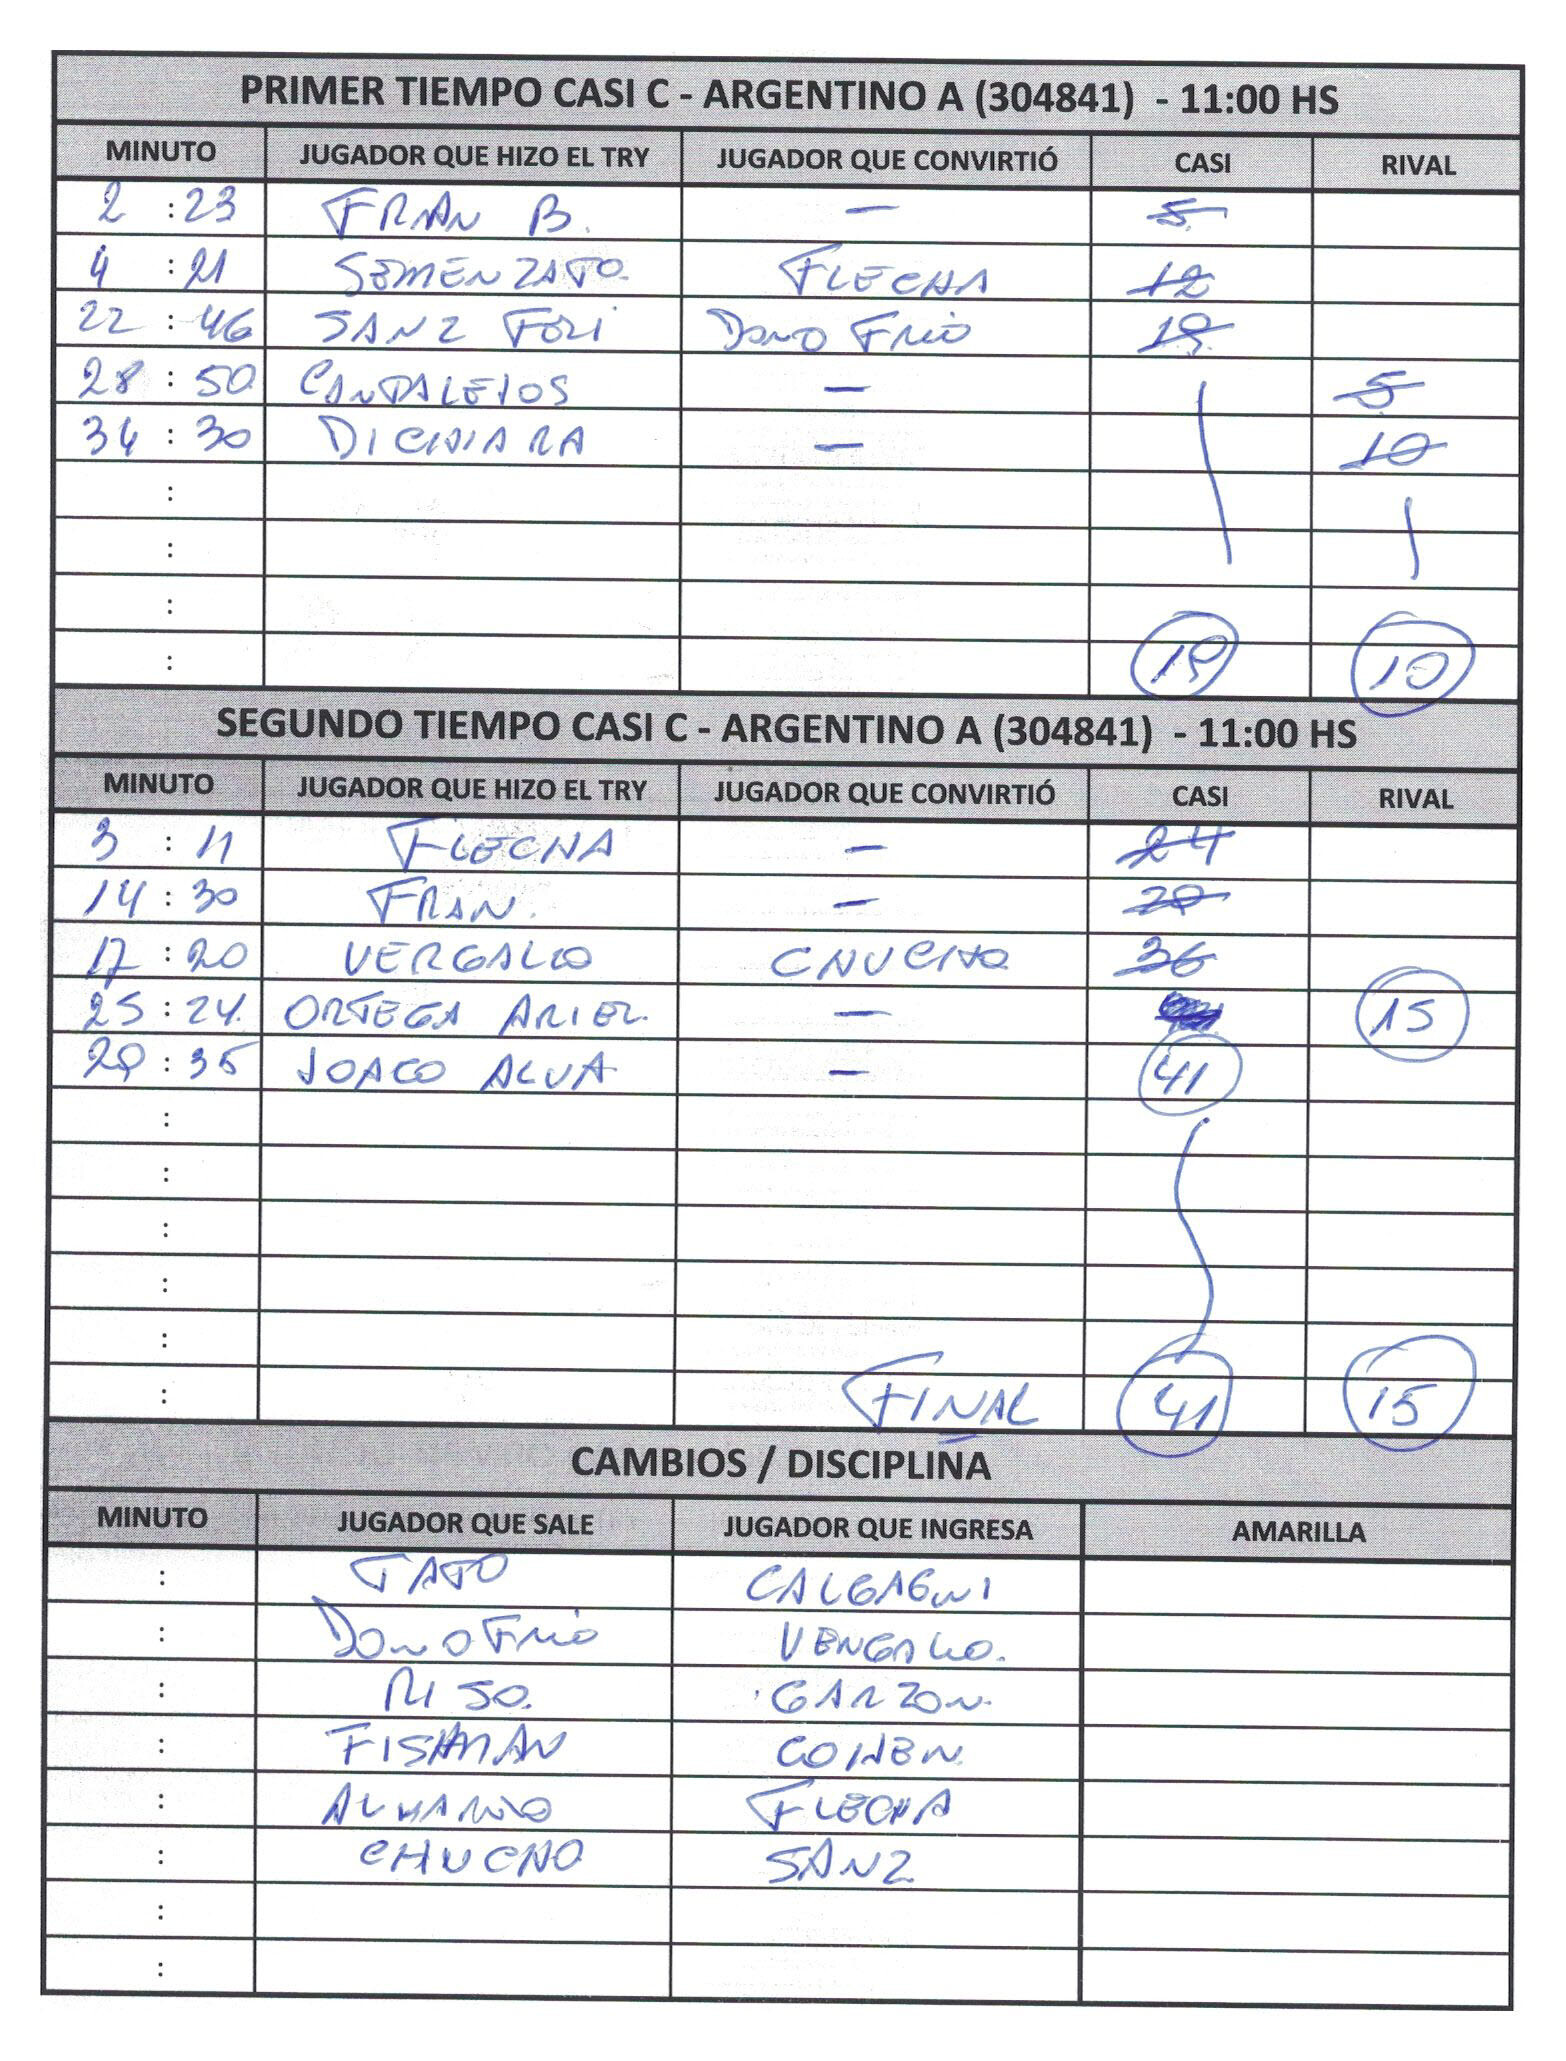 PRIMER TIEMPO CASI C - ARGENTINO A (304841) - 11:00 HS
MINUTO JUGADOR QUE HIZO EL TRY JUGADOR QUE CONVIRTIÓ CASI RIVAL
2 : 23 FRAN B. — 5
4 : 21 SEMENZATO. FLECHA 12
22 : 46 SANZ FELI DONOFRIO 19
28 : 50 CANTALEJOS — 5
34 : 30 DICHIARA — 10
:
:
:
: 19 10
SEGUNDO TIEMPO CASI C - ARGENTINO A (304841) - 11:00 HS
MINUTO JUGADOR QUE HIZO EL TRY JUGADOR QUE CONVIRTIÓ CASI RIVAL
3 : 11 FLECHA — 24
14 : 30 FRAN. — 29
17 : 20 VERGALLO CHUCHO 36
25 : 24 ORTEGA ARIEL — 15
29 : 35 JOACO ALVA — 41
:
:
:
:
:
: FINAL 41 15
CAMBIOS / DISCIPLINA
MINUTO JUGADOR QUE SALE JUGADOR QUE INGRESA AMARILLA
: TATO CALCAGNI
: DONOFRIO VERGALLO.
: RISO. GARZON.
: FISHMAN COHEN
: FLECHA
: CHUCHO SANZ
:
: